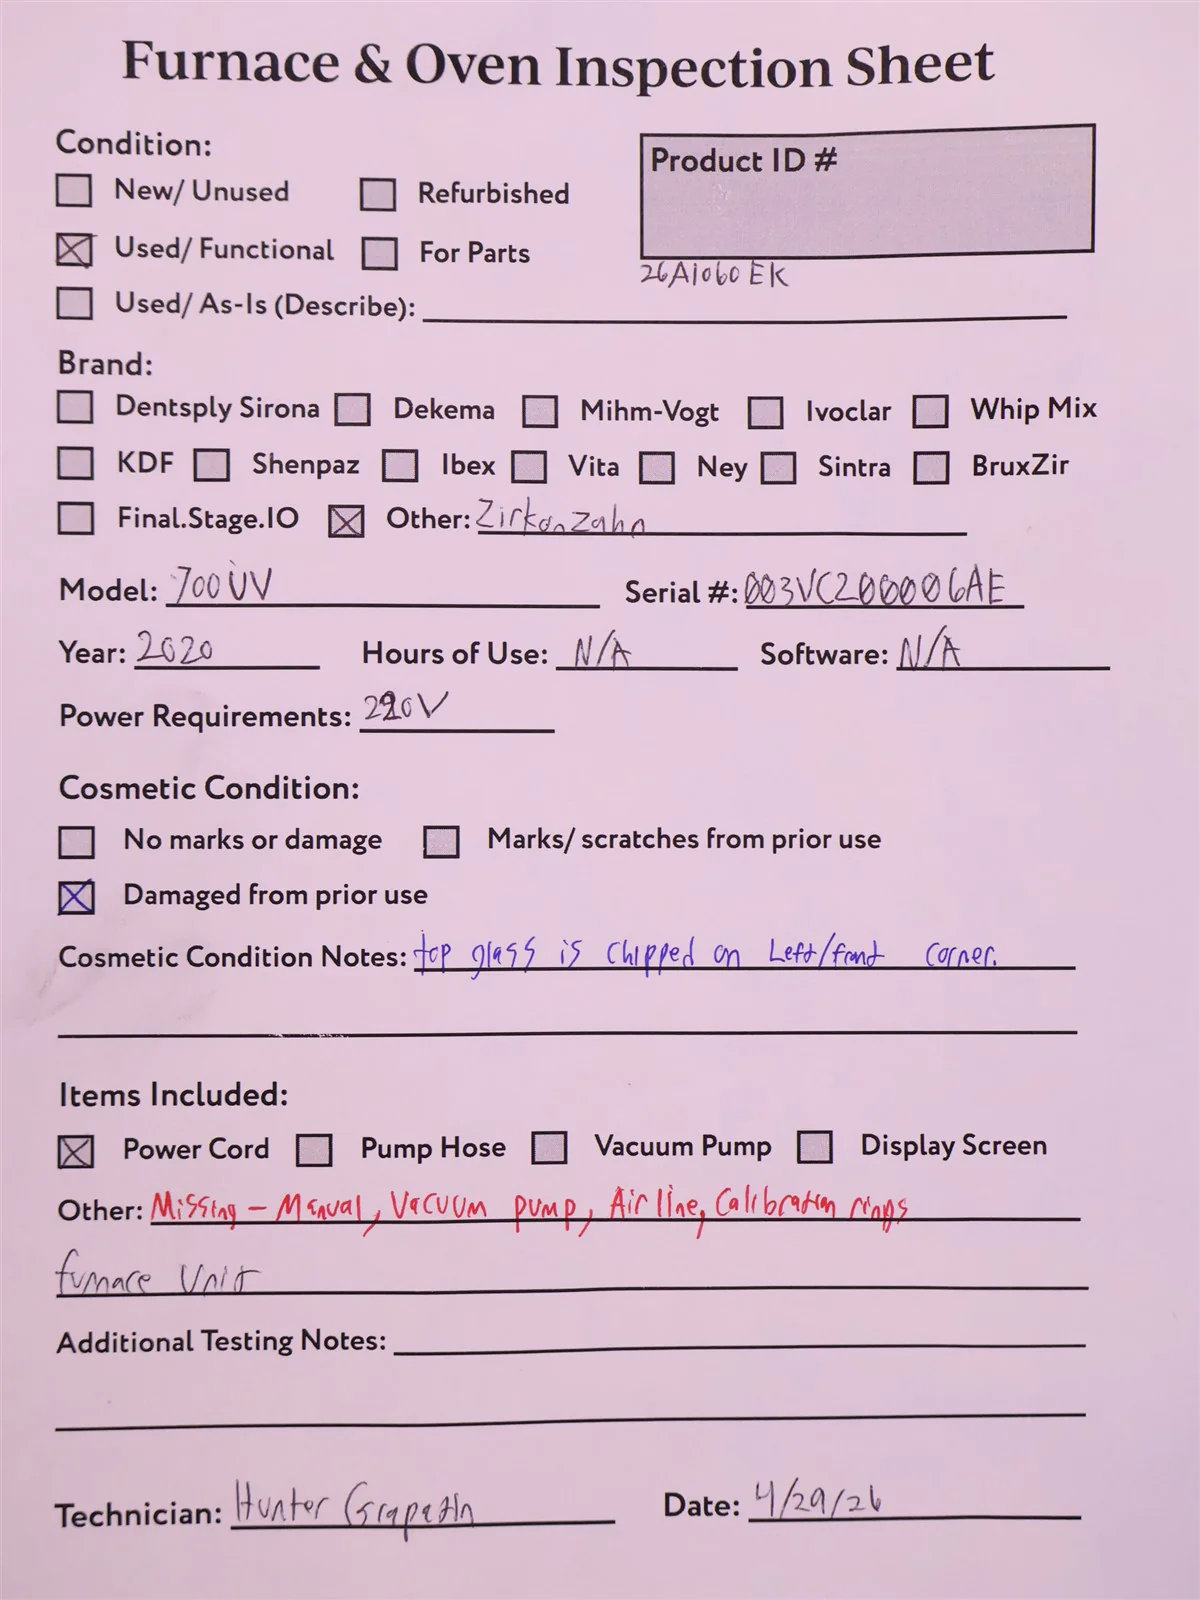 Furnace & Oven Inspection Sheet
Condition:
Product ID #
New/ Unused Refurbished
Used/ Functional For Parts
26A1060EK
Used/ As-Is (Describe):
Brand:
Dentsply Sirona Dekema Mihm-Vogt Ivoclar Whip Mix
KDF Shenpaz Ibex Vita Ney Sintra BruxZir
Final.Stage.IO Other: Zirkonzahn
Model: 700 UV Serial #: 003VC200006AE
Year: 2020 Hours of Use: N/A Software: N/A
Power Requirements: 220V
Cosmetic Condition:
No marks or damage Marks/ scratches from prior use
Damaged from prior use
Cosmetic Condition Notes: top glass is chipped on Left/front corner.
Items Included:
Power Cord Pump Hose Vacuum Pump Display Screen
Other: Missing - Manual, Vacuum pump, Air line, Calibration rings
furnace Unit
Additional Testing Notes:
Technician: Hunter Date: 4/29/26